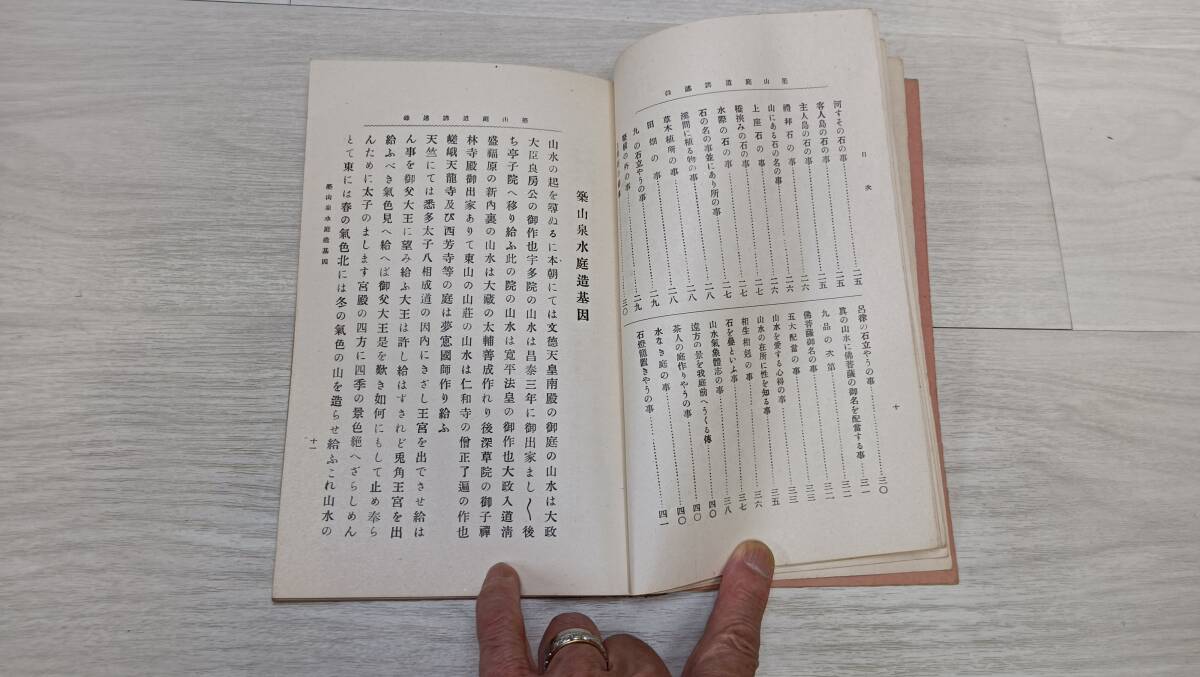 目次
河すその石の事 二五
客人島の石の事 二五
主人島の石の事 二六
禮拜石の事 二六
山にある石の名の事 二六
上座石の事 二七
橋挾みの石の事 二七
水際の石の事 二七
石の名の事並にあり所の事 二八
溪間に植る物の事 二八
草木植所の事 二八
田畑の事 二九
九の石立やうの事 二九
三〇
呂律の石立やうの事 三〇
眞の山水に佛菩薩の御名を配當する事 三一
九品の次第 三二
佛菩薩御名の事 三二
五大配當の事 三三
山水を愛する心得の事 三五
山水の在所に性を知る事 三六
相生相剋の事 三七
石を疊といふ事 三八
山水氣象體志の事 四〇
遠方の景を我庭前へうくる傳 四〇
茶人の庭作りやうの事 四〇
水なき庭の事 四一
石燈籠置きやうの事 四一
十
築山泉水庭造基因
山水の起を尋ぬるに本朝にては文德天皇南殿の御庭の山水は大政
大臣良房公の御作也宇多院の山水は昌泰三年に御出家まし〱後
ち亭子院へ移り給ふ此の院の山水は寬平法皇の御作也大政入道淸
盛福原の新內裏の山水は大藏の太輔善成作れり後深草院の御子禪
林寺殿御出家ありて東山の山莊の山水は仁和寺の僧正了遍の作也
嵯峨天龍寺及び西芳寺等の庭は夢窓國師作り給ふ
天竺にては悉多太子八相成道の因內にきざし王宮を出でさせ給は
ん事を御父大王に望み給ふ大王は許し給はずされど兎角王宮を出
給ふべき氣色見へ給へば御父大王是を歎き如何にもして止め奉ら
んために太子のまします宮殿の四方に四季の景色絕へざらしめん
とて東には春の氣色北には冬の氣色の山を造らせ給ふこれ山水の
築山泉水庭造基因
十一